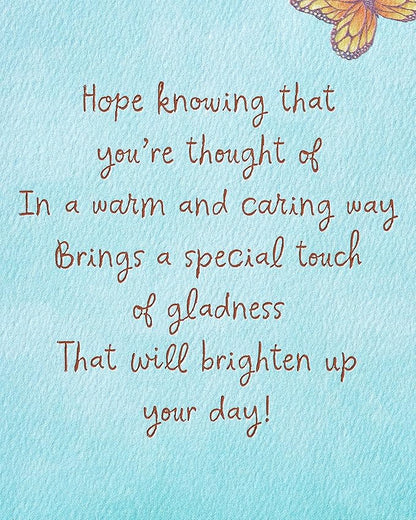 Hope knowing that
you're thought of
In a warm and caring way
Brings a special touch
of gladness
That will brighten up
your day!